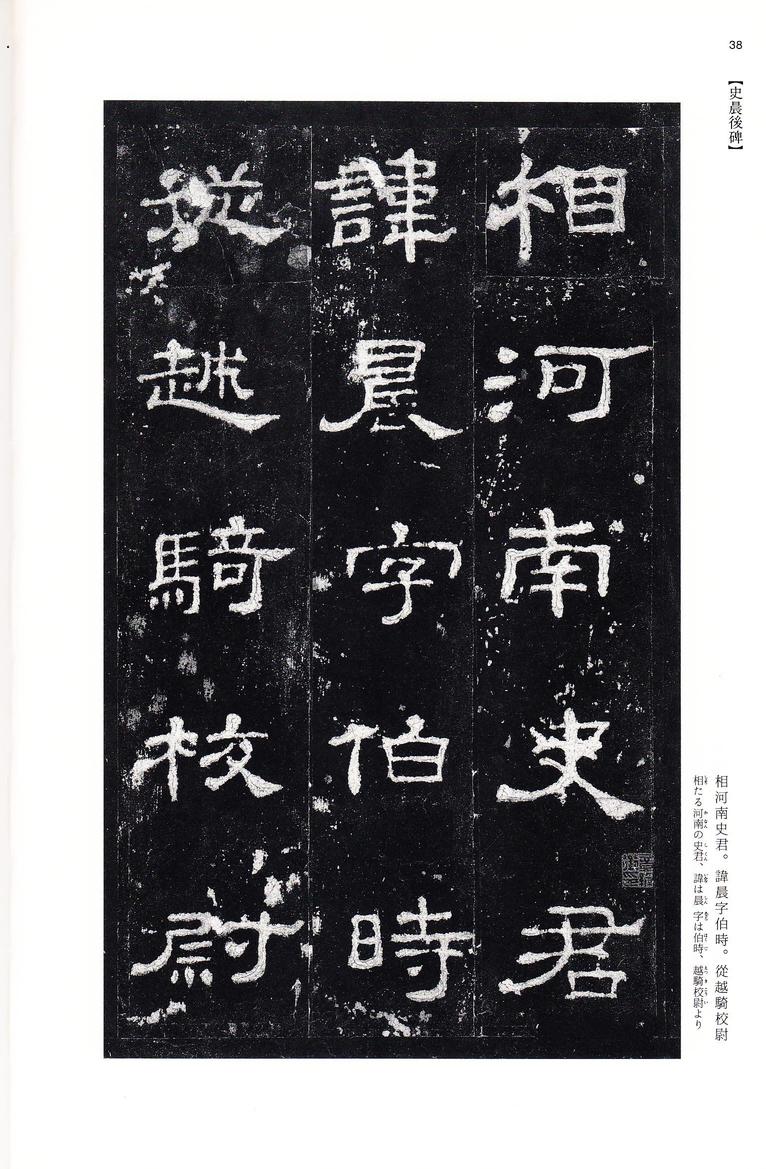 38
【史晨後碑】
相河南史君
諱晨字伯時
從越騎校尉
相河南史君。諱晨字伯時。從越騎校尉
相たる河南の史君、諱は晨 字は伯時、越騎校尉より